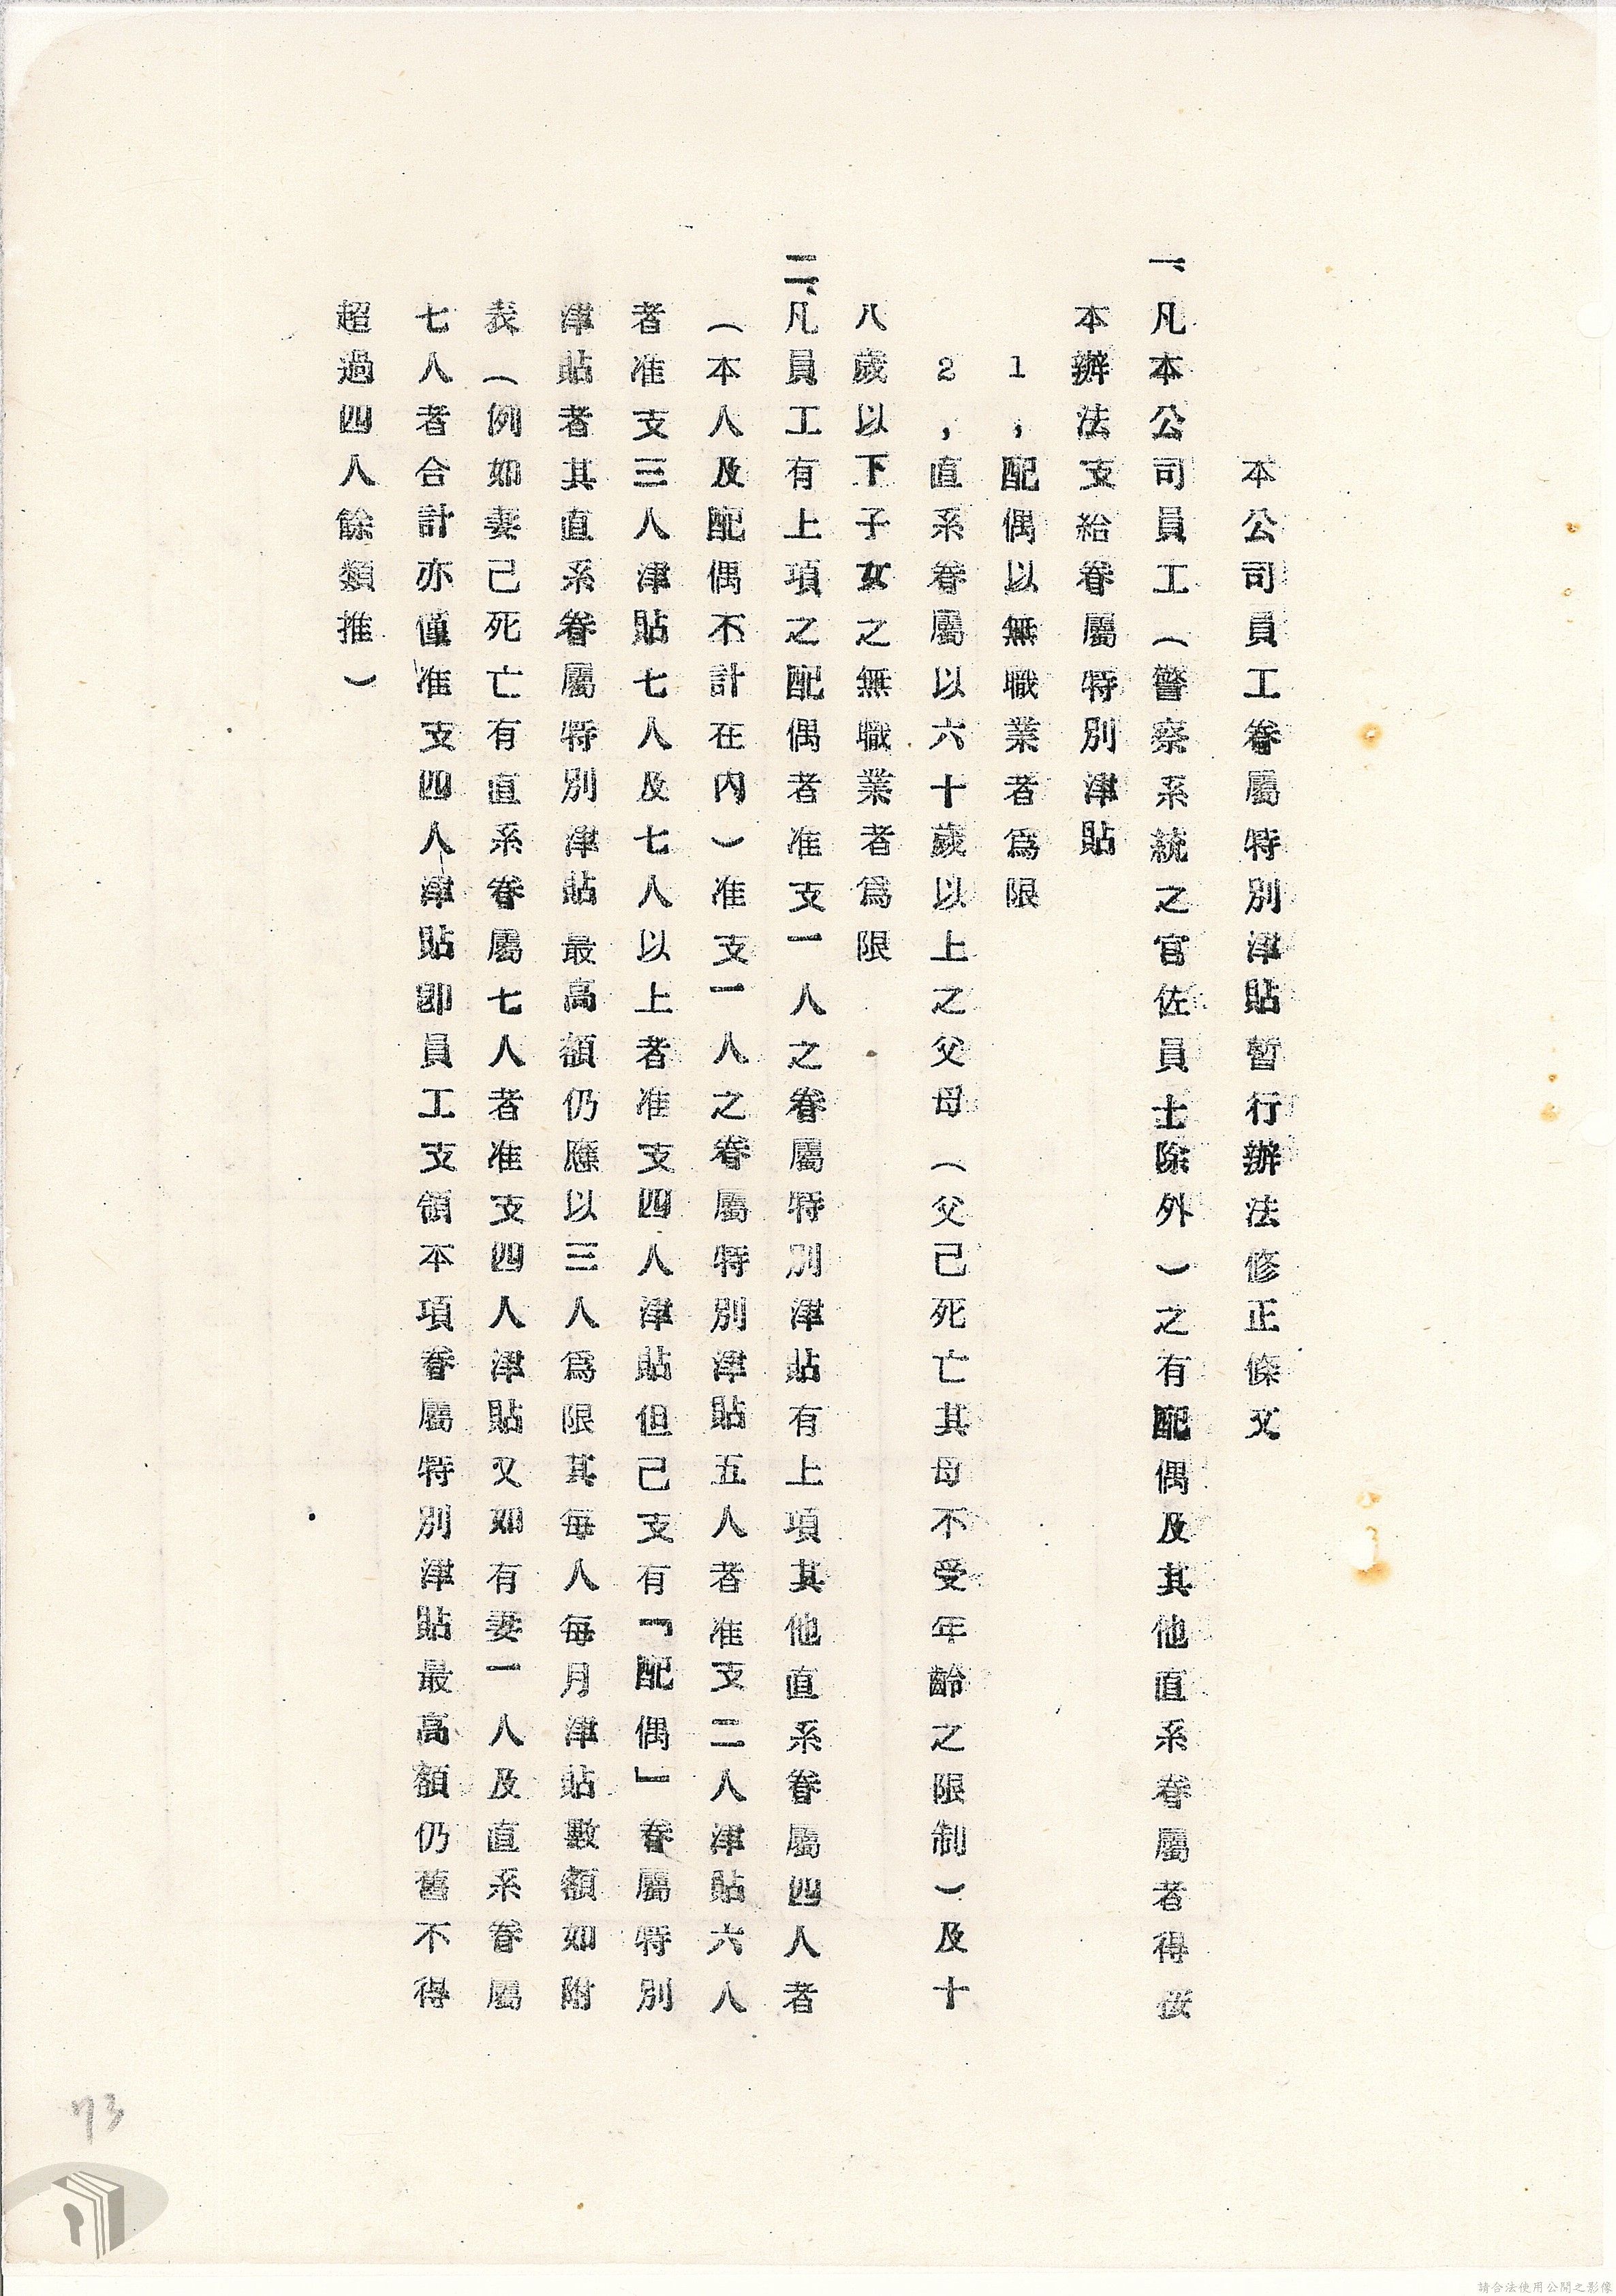 本公司員工眷屬特別津貼暫行辦法修正條文
一、凡本公司員工（警察系統之官佐員士除外）之有配偶及其他直系眷屬者得按
本辦法支給眷屬特別津貼
1，配偶以無職業者爲限
2，直系眷屬以六十歲以上之父母（父己死亡其母不受年齡之限制）及十
八歲以下子女之無職業者爲限
二、凡員工有上項之配偶者准支一人之眷屬特別津貼有上項其他直系眷屬四人者
（本人及配偶不計在內）准支一人之眷屬特別津貼五人者准支二人津貼六人
者准支三人津貼七人及七人以上者准支四人津貼但己支有「配偶」眷屬特別
津貼者其直系眷屬特別津貼最高額仍應以三人爲限其每人每月津貼數額如附
表（例如妻己死亡有直系眷屬七人者准支四人津貼又如有妻一人及直系眷屬
七人者合計亦僅准支四人津貼卽員工支領本項眷屬特別津貼最高額仍舊不得
超過四人餘類推）
73
請合法使用公開之影像